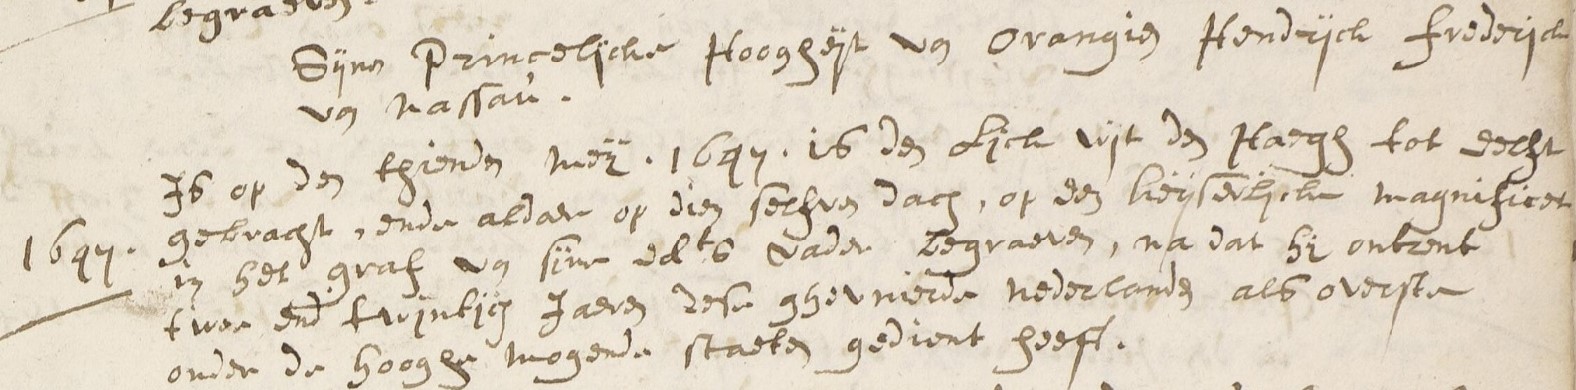 begraeven.
Sijne Princelijcke Hoogheijt va Orangien Hendrijck frederijck
va Nassau.
Is op den thienden meij. 1647. is den Lijck uijt den Haegh tot delft
1647. gebracht, ende aldaer op dien selven dach, op den keijserlijcke magnificet
in het graf va sijne Edts vader begraeven, na dat hij ontrent
twee end twijntich Jaeren dese ghevnierde nederlanden als overste
onder de hooghe mogende staeten gedient heeft.